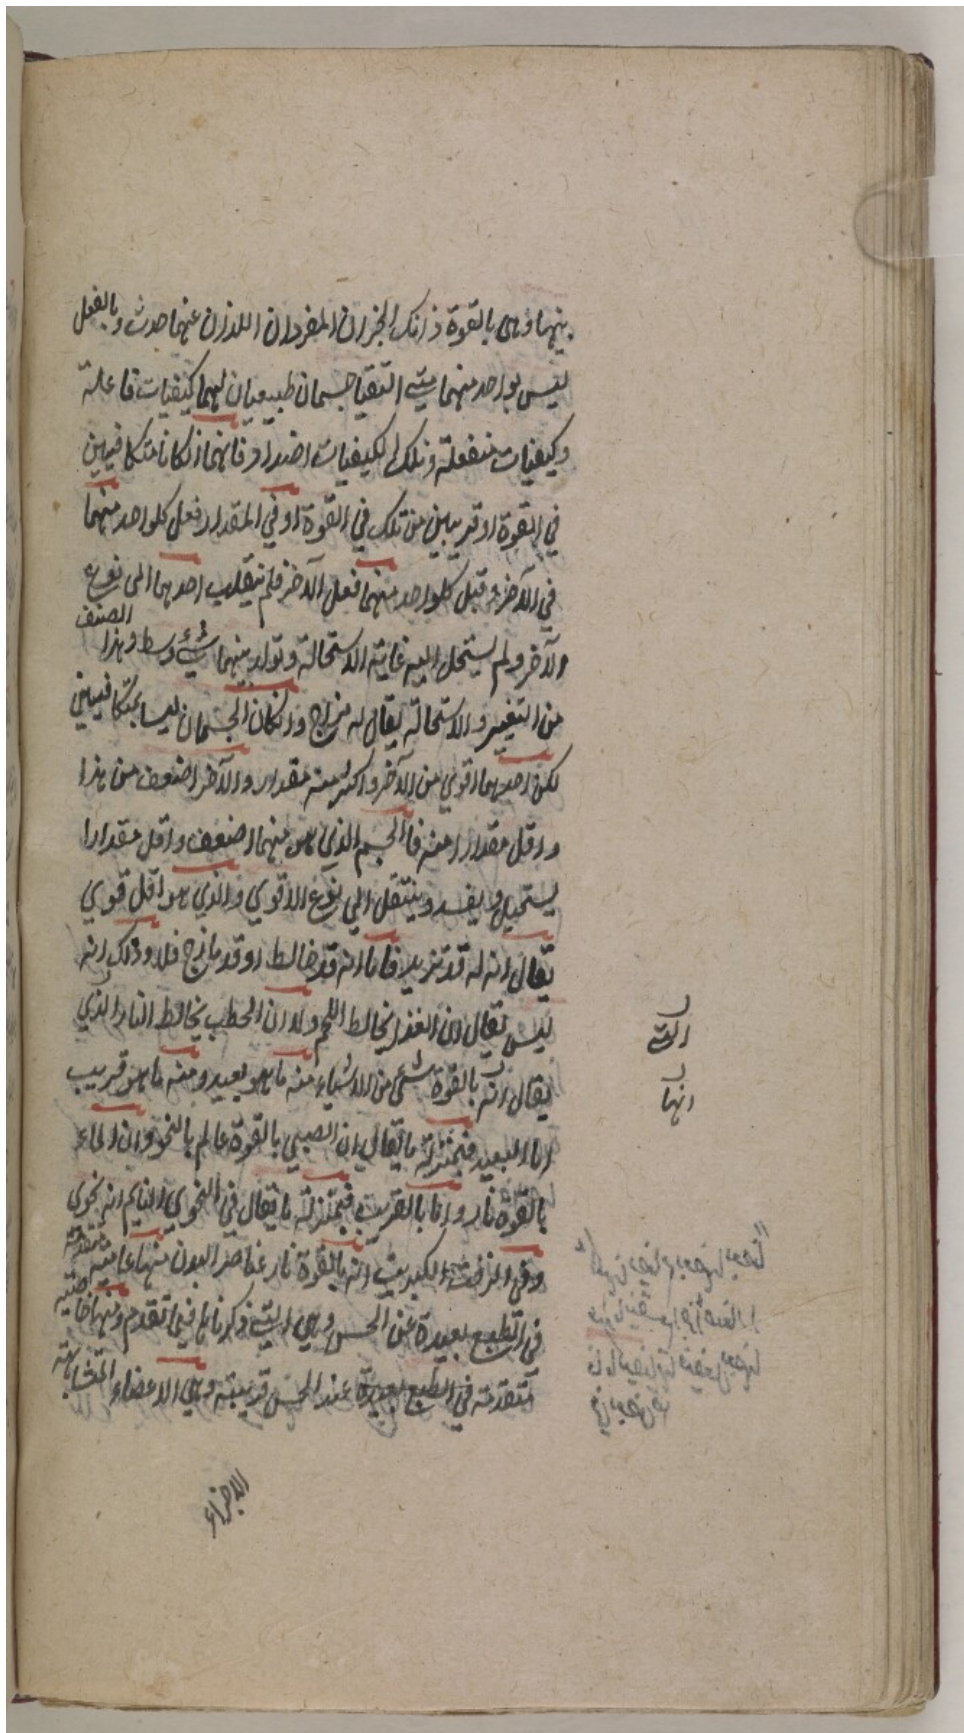 بينهما وهي بالقوة ذانك الجزران المفردان اللذان عنهما حدث وبالفعل
ليس بواحد منهما متى التقيا جسمان طبيعيان لهما كيفيات فاعلة
وكيفيات منفعلة وتلك الكيفيات اضداد فانهما اذا كانا متكافيين
في القوة او قريبين من تلك في القوة او في المقدار فعل كلواحد منهما
في الآخر وقبل كلواحد منهما فعل الآخر فلم ينقلب احدهما الى نوع
الآخر ولم يستحل اليه غاية الاستحالة وتولد بينهما شئ وسط وهذا الصنف
من التغيير والاستحالة يقال له مزاج وان كان الجسمان ليسا بمتكافيين
لكن احدهما اقوى من الآخر واكثر منه مقدار والآخر اضعف من هذا
واقل مقدارا منه فالجسم الذي هو منهما اضعف واقل مقدارا
يستحيل ويفسد وينتقل الى نوع الاقوى والذي هو اقل قوى
يقال انه له قد تزيد فاما انه قد خالط او قد مازج فلا وذلك انه
ليس يقال ان الغذا يخالط اللحم ولا ان الحطب يخالط النار الذي
يقال انه بالقوة شئ من الاشياء منه ما هو بعيد ومنه ما هو قريب
اما البعيد فبمنزلة ما يقال ان الصبي بالقوة عالم بالنحو وان الماء
بالقوة نار واما بالقريب فبمنزلة ما يقال في النحوي النايم انه نحوى
وفي الزفت والكبريت انه بالقوة نار عناصر البدن منها عامية متقدمة
في الطبع بعيدة عن الحس وهي التي ذكرناها فيما تقدم ومنها خاصية
متقدمة في الطبع بعيدة عند الحس قريبة وهي الاعضاء المتشابهة
الاجزاء
التي
انها